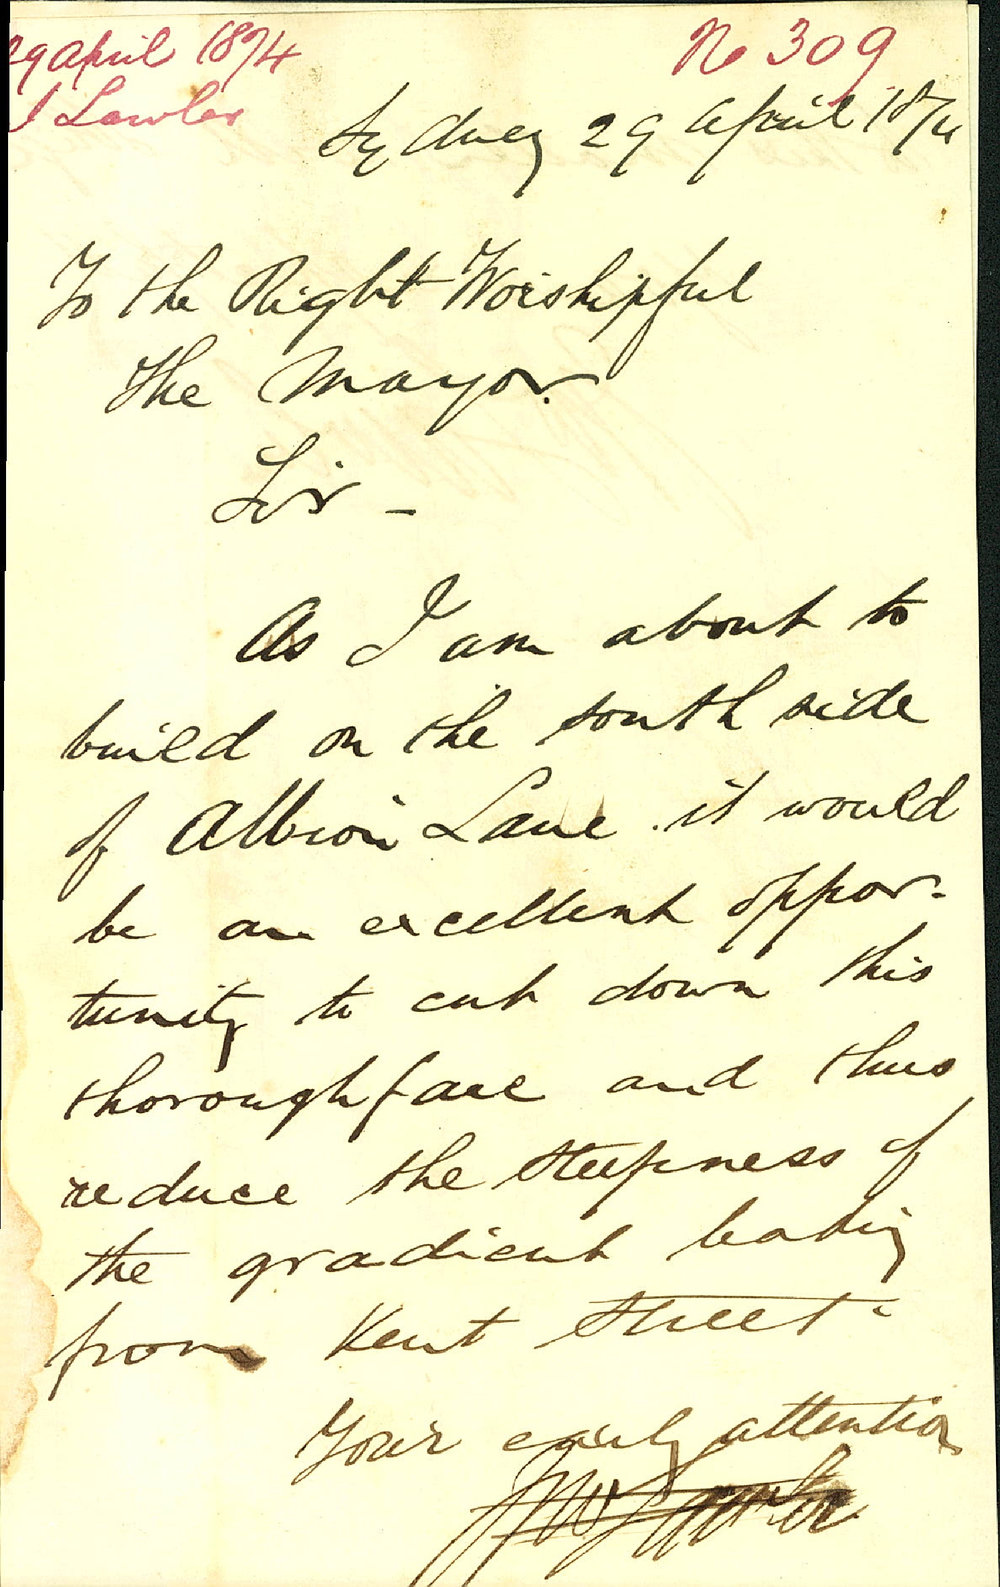 29 April 1874
J Lawler
No 309
Sydney 29 April 1874
To the Right Worshipful
The Mayor.
Sir -
As I am about to
build on the south side
of Albion Lane it would
be an excellent oppor-
tunity to cut down this
thoroughfare and thus
reduce the steepness of
the gradient leading
from Kent Street
Your early attention